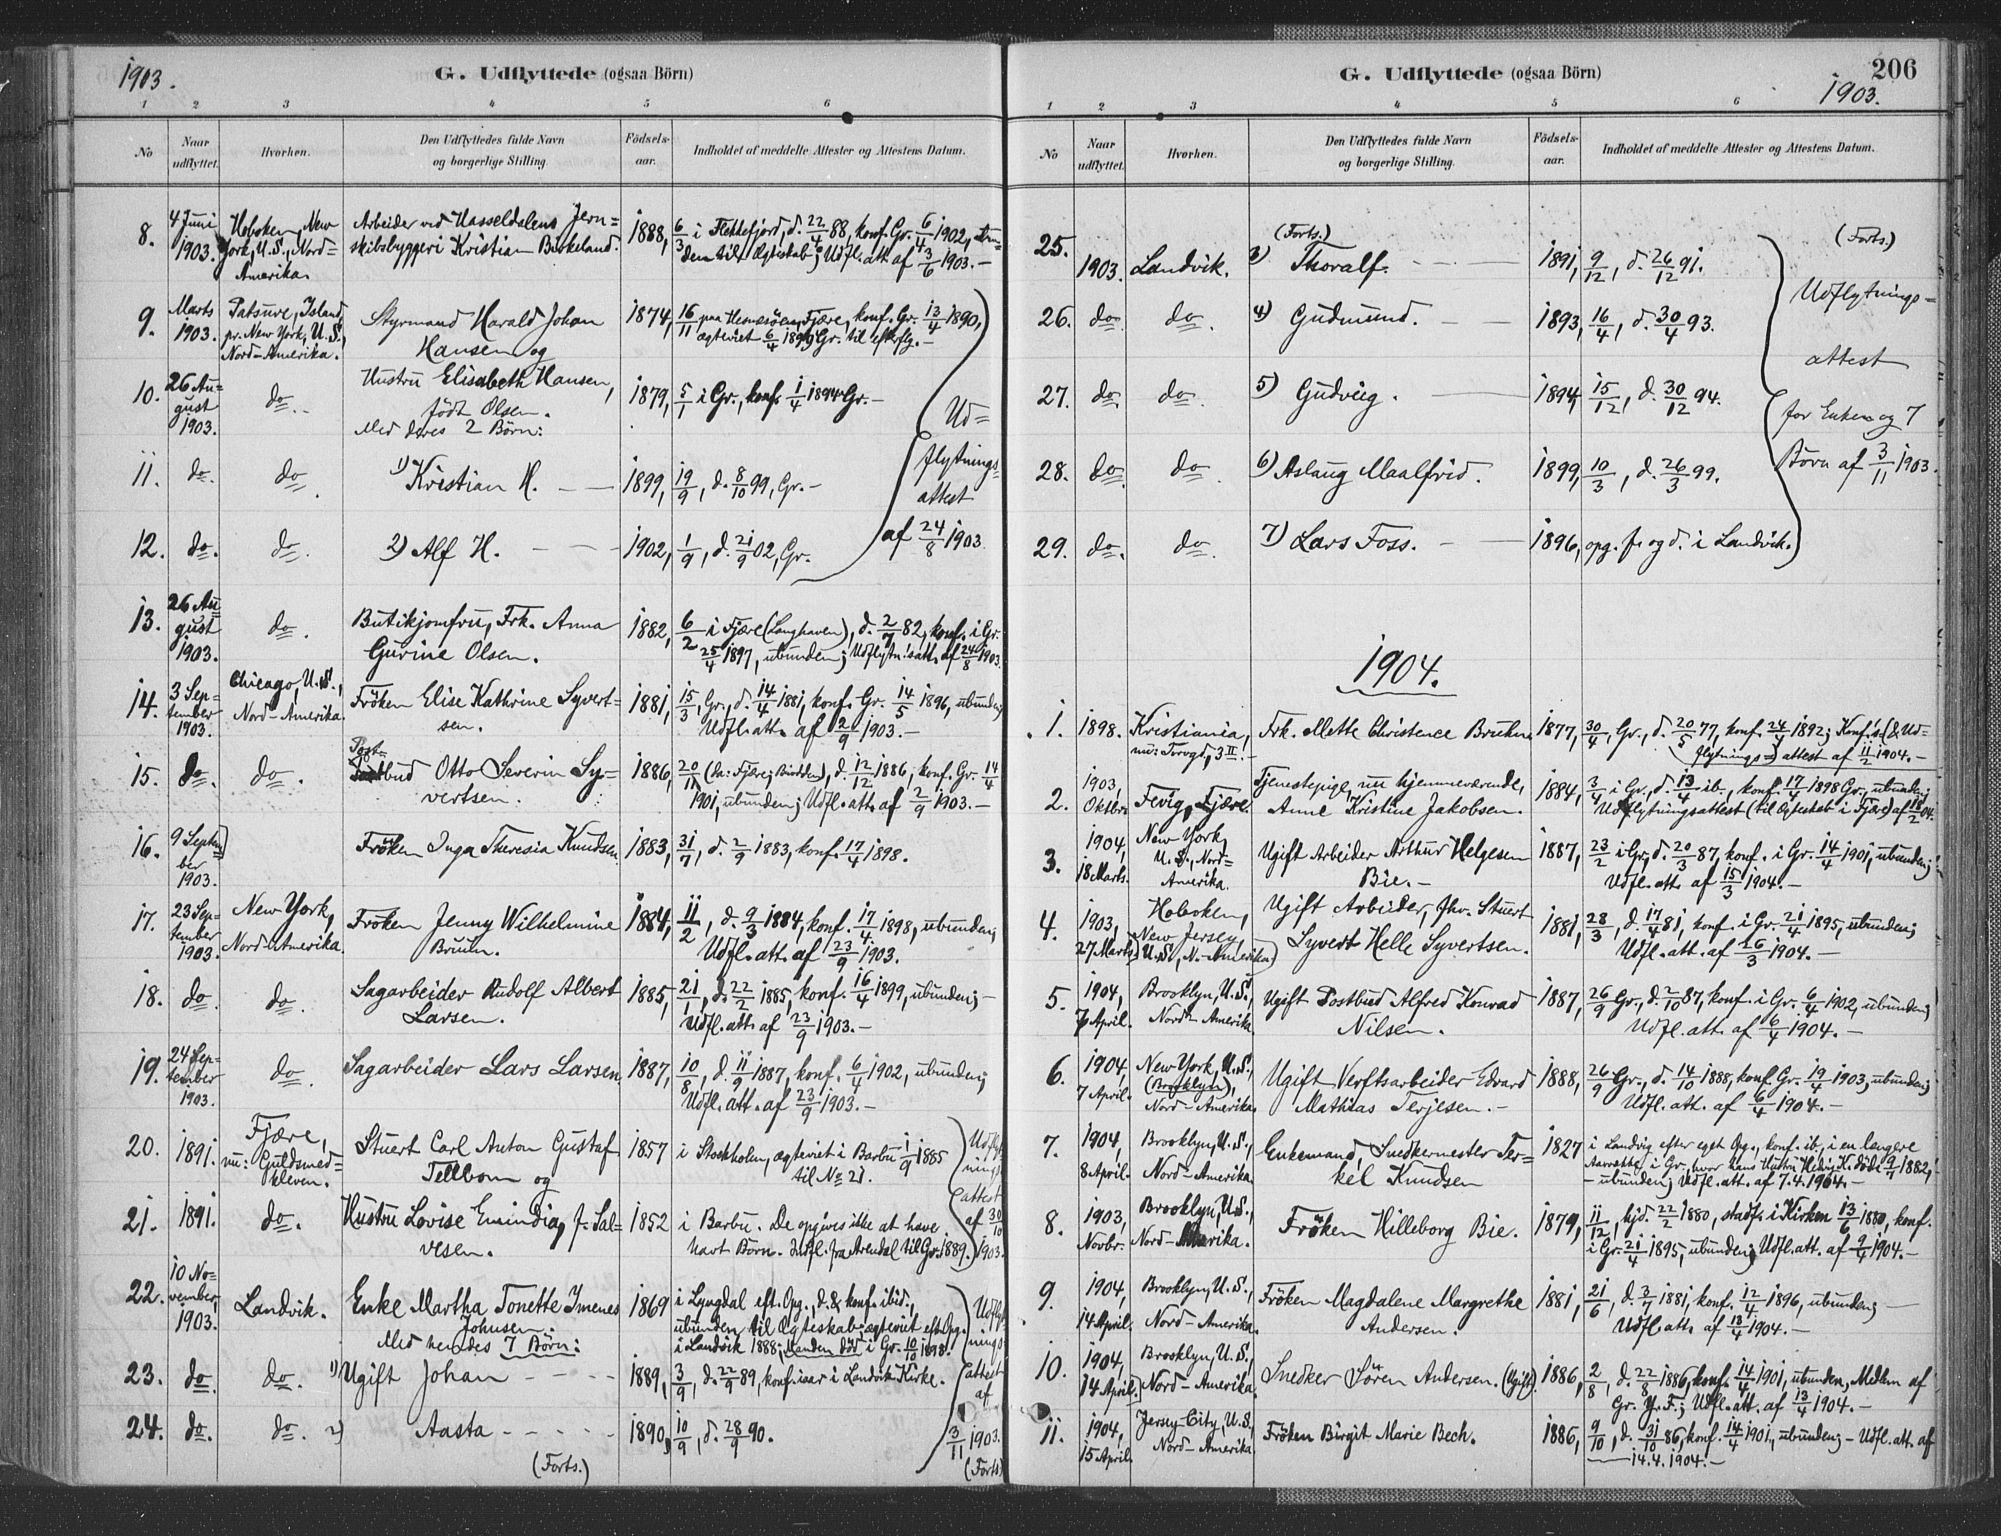 1903.
G. Udflyttede (ogsaa Börn)
1 2 3 4 5 6
No
Naar udflyttet.
Hvorhen.
Den Udflyttedes fulde Navn og borgerlige Stilling.
Födsels-aar.
Indholdet af meddelte Attester og Attestens Datum.
8. 4 Juni 1903. Hoboken, New York, U.S., Nord=Amerika. Arbeider ved Hasseldalens Jern=skibsbyggeri Kristian Birkeland. 1888, 6/3 i Flekkefjord, d. 22/4 88, konf. Gr. 6/4 1902, Udfl. att. af 3/6 1903.—
9. Marts 1903. Island, pr. New York, U.S., Nord-Amerika. Styrmand Harald Johan Hansen og 1874, 16/11 paa Hesnesöen, Fjære, konf. Gr. 13/4 1890, ægteviet 6/4 1899 Gr. til efterflg.—
10. 26 August 1903. do. Hustru Elisabeth Hansen, född Olsen. Med deres 2 Börn: 1879, 5/1 i Gr., konf. 1/4 1894 Gr.—
11. do. do. 1) Kristian H. — — 1899, 19/9, d. 8/10 99, Gr.—
12. do. do. 2) Alf H. — — 1902, 1/9, d. 21/9 02, Gr.
Ud=flytnings=attest af 24/8 1903.
13. 26 August 1903. do. Butikjomfru, Frk. Anna Gurine Olsen. 1882, 6/2 i Fjære (Langhaven), d. 2/7 82, konf. i Gr. 25/4 1897, ubunden; Udflytn.'s att. af 24/8 1903.
14. 3 September 1903. Chicago, U.S., Nord-Amerika. Fröken Elise Kathrine Syvert=sen. 1881, 15/3, Gr., d. 14/4 1881, konf. Gr. 14/5 1896, ubunden; Udfl. att. af 2/9 1903.—
15. do. do. Postbud Otto Severin Sy=vertsen. 1886, 20/11 (Fjære; Biodden), d. 12/12 1886, konf. Gr. 14/4 1901, ubunden; Udfl. att. af 2/9 1903.—
16. 9 September 1903. Fröken Inga Theresia Knudsen 1883, 31/7, d. 2/9 1883, konf. 17/4 1898.
17. 23 September 1903. New York, Nord-Amerika. Fröken Jenny Wilhelmine Bruun. 1884, 11/2, d. 9/3 1884, konf. 17/4 1898, ubunden; Udfl. att. af 23/9 1903.
18. do. do. Sagarbeider Rudolf Albert Larsen. 1885, 21/1, d. 22/2 1885, konf. 16/4 1899, ubunden;— Udfl. att. af 23/9 1903.—
19. 24 September 1903. do. Sagarbeider Lars Larsen 1887, 10/8, d. 11/9 1887, konf. 6/4 1902, ubunden; Udfl. att. af 23/9 1903.—
20. 1891. Fjære, nu: Guldsmed=kleven. Stuert Carl Anton Gustaf Tellbom og 1857 i Stockholm, ægteviet i Barbu 1/9 1885 til No 21.
21. 1891. do. Hustru Lovise Emindia, f. Sal=vesen. 1852 i Barbu. De opgives ikke at have havt Börn. Indfl. fra Arendal til Gr. 1889.
Udflytningsattest af 30/10 1903.
22. 10 November 1903. Landvik. Enke Martha Tonette Imenes Johnsen. Med hendes 7 Börn: 1869 i Lyngdal eft. Opg., d. & konf. ibid., ubunden til Ægteskab; ægteviet eft. Opg. i Landvik 1888; Manden död i Gr. 10/10 1898.
23. do. do. 1) Ugift Johan — — 1889, 3/9, d. 22/9 89, konf. iaar i Landvik Kirke.
24. do. do. 2) Aasta — — 1890, 10/9, d. 28/9 90.
(Forts.)
Udflytningsattest af 3/11 1903. (Forts)
G. Udflyttede (ogsaa Börn)
206
1903.
1 2 3 4 5 6
No
Naar udflyttet.
Hvorhen.
Den Udflyttedes fulde Navn og borgerlige Stilling.
Födsels-aar.
Indholdet af meddelte Attester og Attestens Datum.
(Forts.)
25. 1903. Landvik. 3) Thoralf. — — 1891, 9/12, d. 26/12 91.
26. do. do. 4) Gudmund. — 1893, 16/4, d. 30/4 93.
27. do. do. 5) Gudveig. — 1894, 15/12, d. 30/12 94.
28. do. do. 6) Aslaug Maalfrid. 1899, 10/3, d. 26/3 99.
29. do. do. 7) Lars Foss. — 1896, opg. f. og d. i Landvik.
(Forts.)
Udflytnings=attest for Enken og 7 Börn af 3/11 1903.
1904.
1. 1898. Kristiania, nu: Torvgd. 3 II.— Frk. Mette Christence Bruhn 1877, 30/4, Gr., d. 20/5 77, konf. 24/4 1892; Konf.'s (& Ud=flytnings=) attest af 11/2 1904.—
2. 1903, Oktbr. Fevig, Fjære. Tjenestepige, nu hjemmeværende, Anne Kristine Jakobsen. 1884, 3/4 i Gr., d. 13/4 ib., konf. 17/4 1898 Gr., ubunden; Udflytningsattest (til Ægteskab i Fjære) af 18/2 04.
3. 1904, 18 Marts. New York, U.S., Nord=Amerika. Ugift Arbeider Arthur Helgesen Bie.— 1887, 23/2 i Gr., d. 20/3 87, konf. i Gr. 14/4 1901, ubunden; Udfl. att. af 15/3 1904.—
4. 1903, 27 Marts. Hoboken, New Jersey, U.S., N.-Amerika Ugift Arbeider, fhv. Stuert Syvert Helle Syvertsen. 1881, 28/3, d. 17/4 81, konf. i Gr. 21/4 1895, ubunden; Udfl. att. af 26/3 1904.—
5. 1904, 7 April. Brooklyn, U.S., Nord-Amerika Ugift Postbud Alfred Konrad Nilsen. 1887, 26/9 Gr., d. 2/10 87, konf. i Gr. 6/4 1902, ubunden; Udfl. att. af 6/4 1904.—
6. 1904, 7 April. New York, U.S., (Brooklyn), Nord-Amerika. Ugift Verftsarbeider Edvard Mathias Terjesen.— 1888, 26/9 Gr., d. 14/10 1888, konf. Gr. 19/4 1903, ubunden; Udfl. att. af 6/4 1904.—
7. 1904, 8 April. Brooklyn, U.S., Nord-Amerika. Enkemand, Snedkermester Ter=kel Knudsen 1827 i Landvig efter eget Opg., konf. ib., i en længere Aarrække i Gr., hvor hans Hustru Hedvig K. döde 9/4 1882, — ubunden; Udfl. att. af 7.4.1904.—
8. 1903, Novbr. Brooklyn, U.S., Nord-Amerika. Fröken Hilleborg Bie. 1879, 11/12, hjd. 22/2 1880, stadf. i Kirken 13/6 1880, konf. i Gr. 21/4 1895, ubunden; Udfl. att. af 9/4 1904.—
9. 1904, 14 April. Brooklyn, U.S., Nord-Amerika. Fröken Magdalene Margrethe Andersen. 1881, 21/6, d. 3/7 1881, konf. 12/4 1896, ubunden;— Udfl. att. af 13/4 1904.—
10. 1904, 14 April. Brooklyn, U.S., Nord-Amerika Snedker Sören Andersen. (Ugift) 1886, 2/8, d. 22/8 1886, konf. 14/4 1901, ubunden, Medlem af Gr. Y. F.; Udfl. att. af 13/4 1904.—
11. 1904, 15 April. Jersey-City, U.S., Nord-Amerika Fröken Birgit Marie Bech. 1886, 9/10, d. 31/10 86, konf. 14/4 1901, ubunden;— Udfl. att. af — 14.4.1904.—